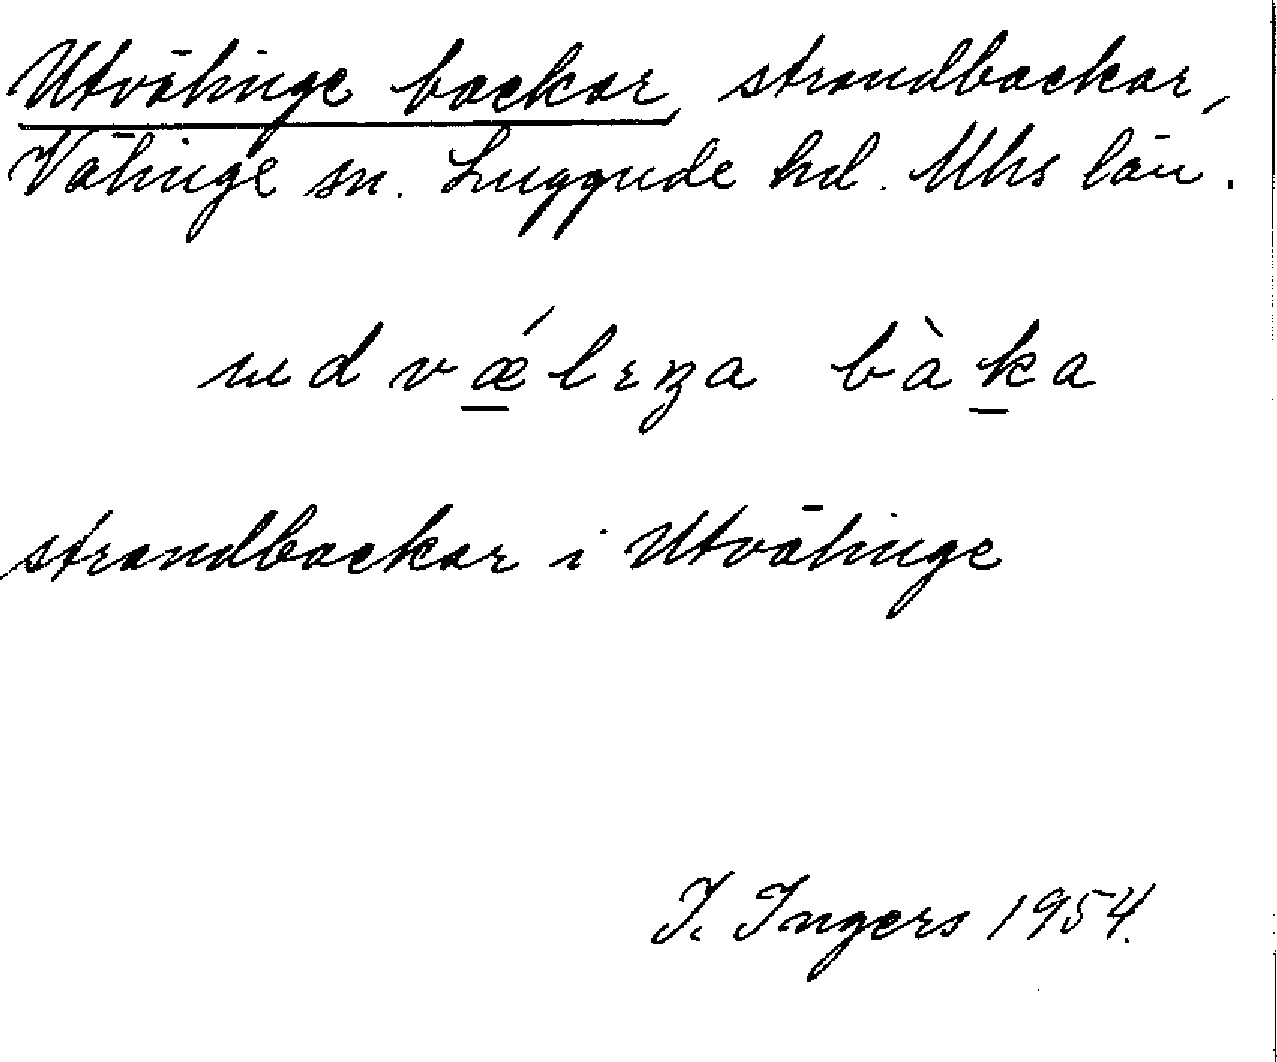 Utvälinge backar, strandbackar,
Välinge sn. Luggude hd. Mhs län.
udvǽlɪŋa bàka
strandbackar i Utvälinge
I. Ingers 1954.